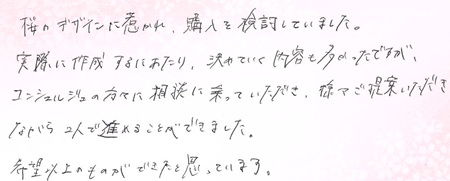 桜のデザインに惹かれ、購入を検討していました。
実際に作成するにあたり、決めていく内容も多かったですが、
コンシェルジュの方々に相談に乗っていただき、様々ご提案いただき
ながら2人で進めることができました。
希望以上のものができたと思っています。